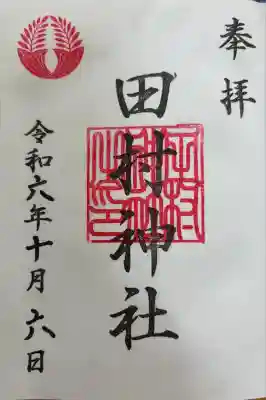 奉拝
田村神社
令和六年十月六日